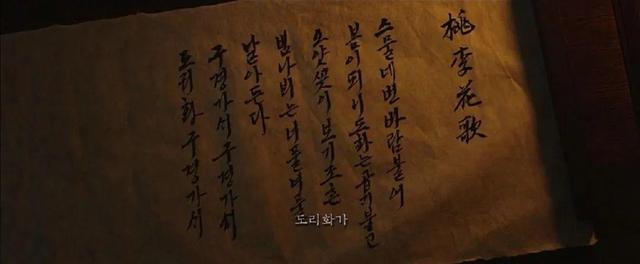 桃李花歌
스물네번바람불어
봄이되니도화는곱게붉고
오얏꽃이보기조흔
범나비는너풀너풀
날아든다
구경가세구경가세
도리화구경가세
도리화가